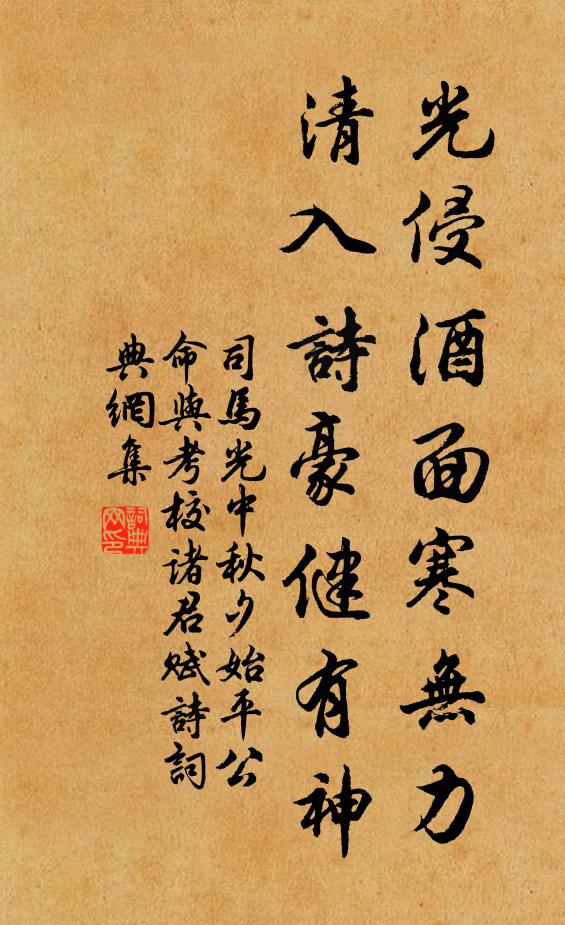 光侵酒面寒無力
清入詩豪健有神
司馬光中秋夕始平公
命與考校諸君賦詩詞
典網集
詞典網印